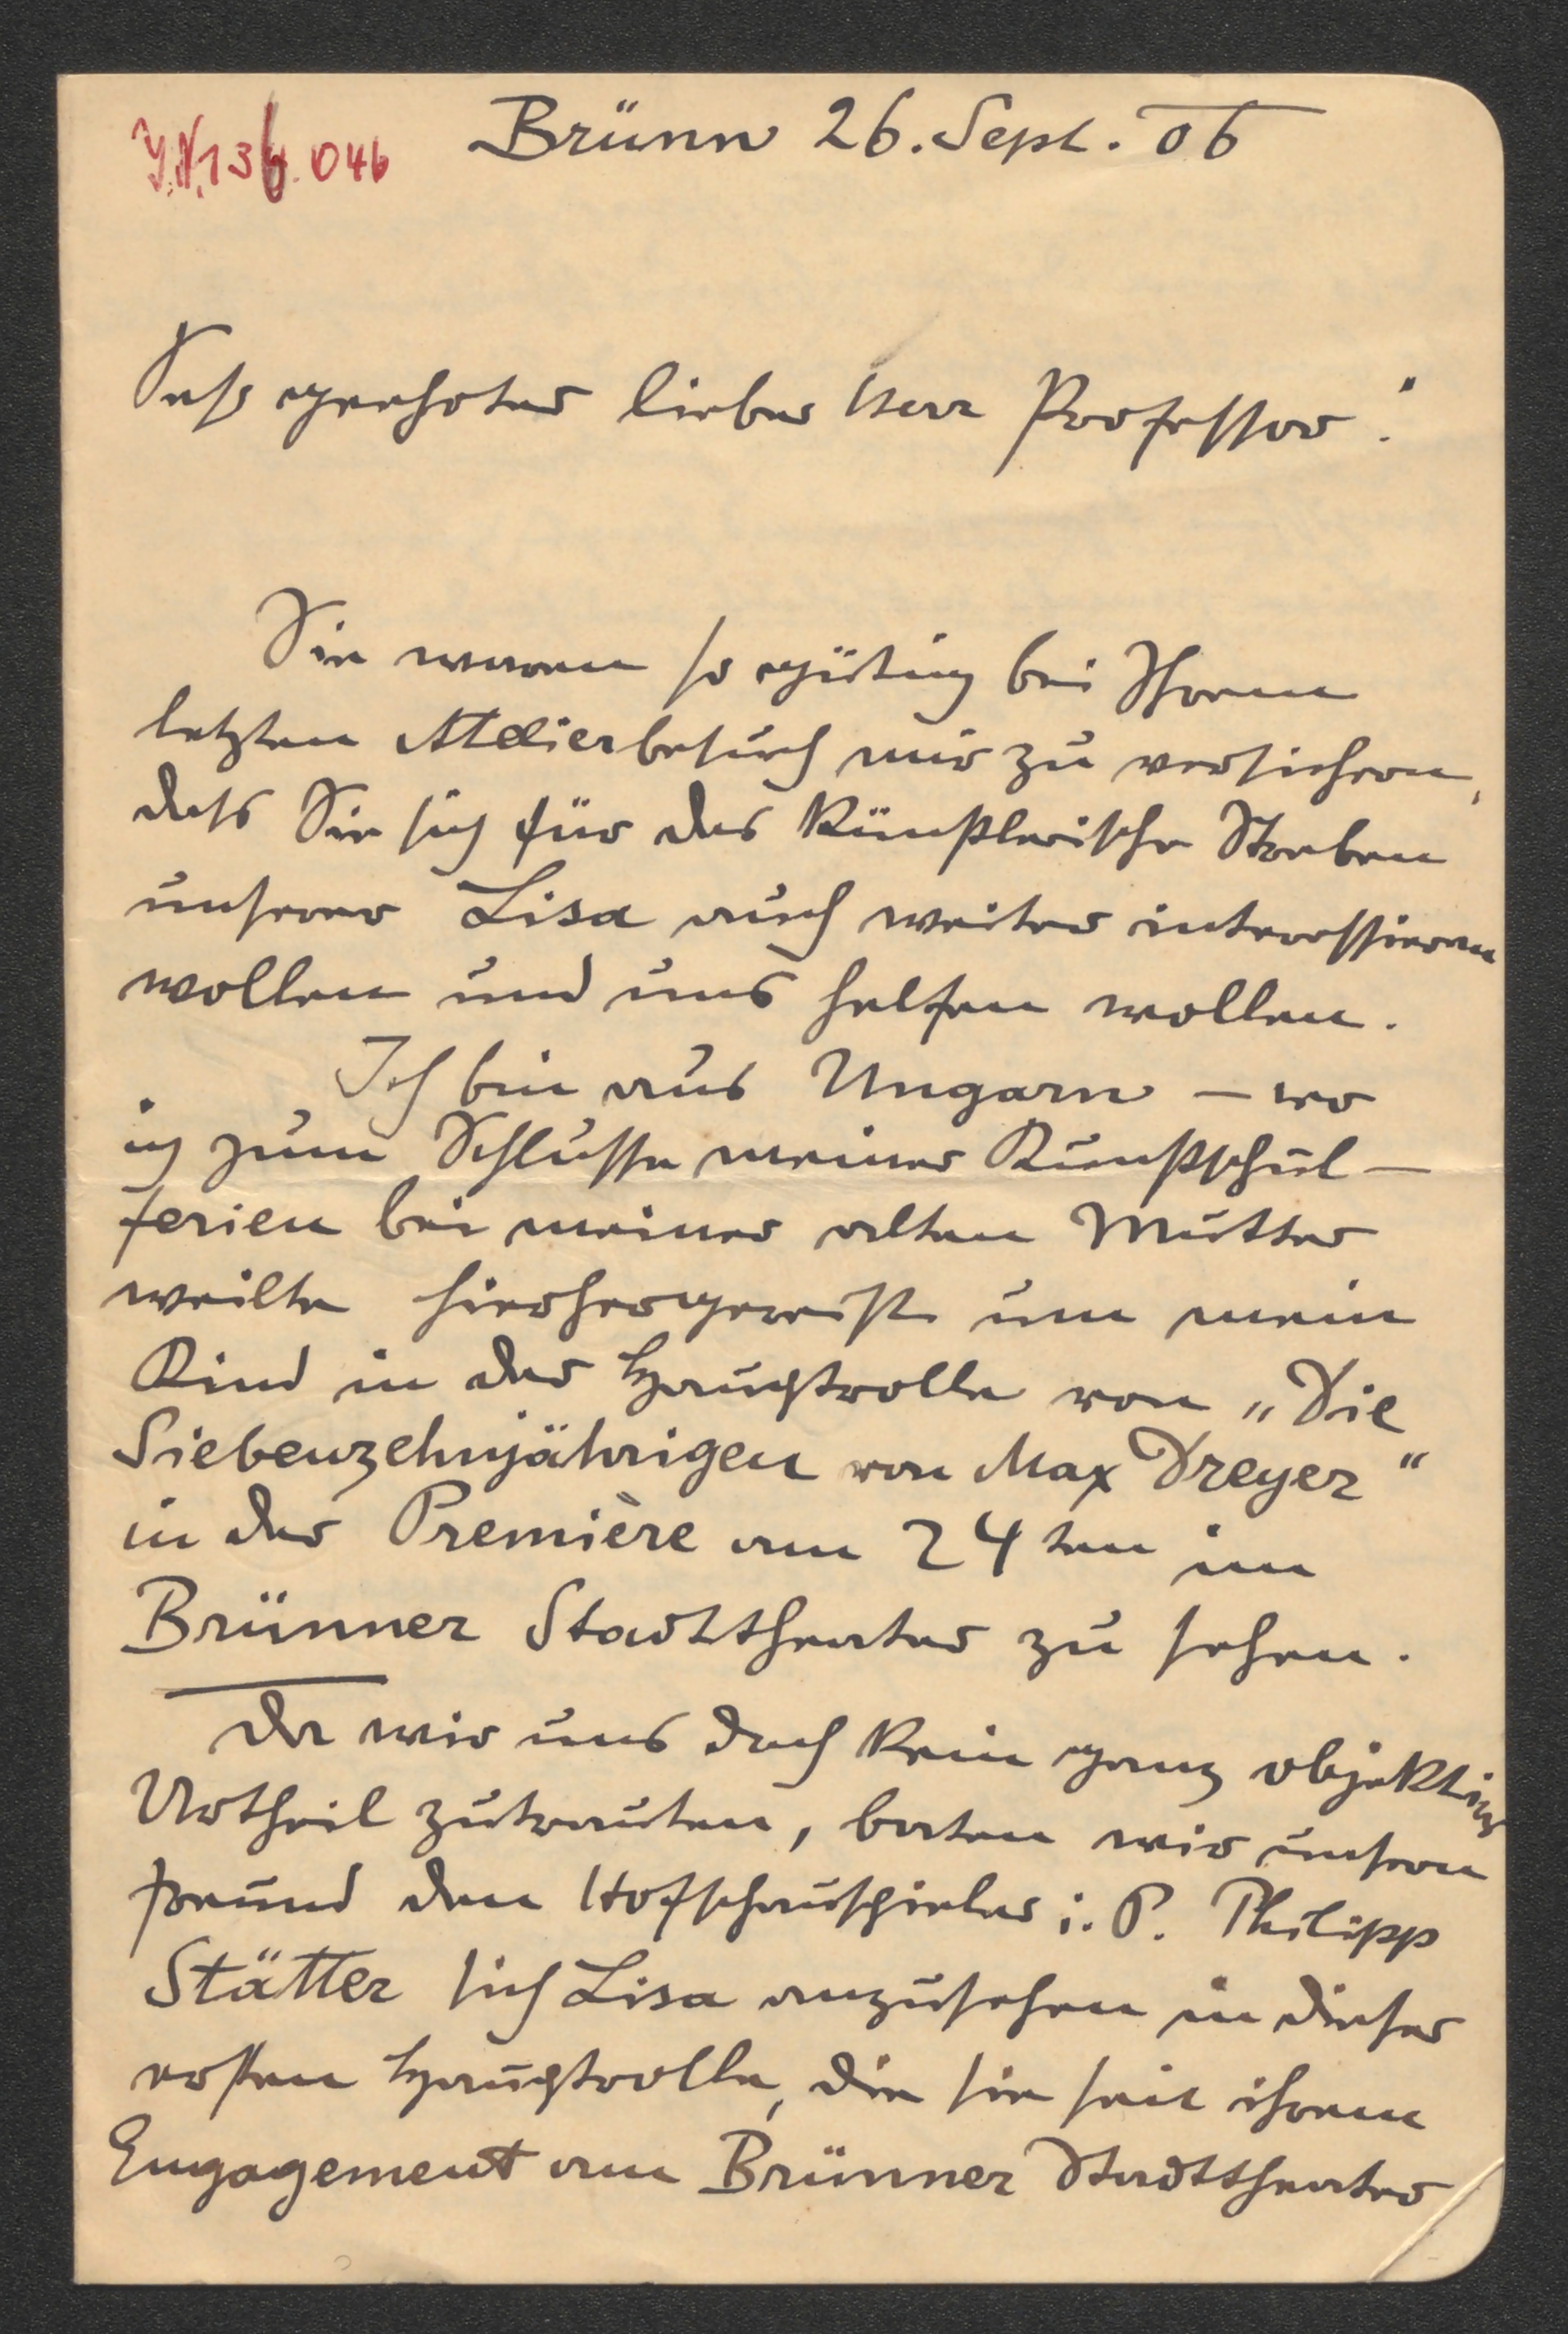 J.N. 136.046
Brünn 26. Sept. 06
Sehr geehrter lieber Herr Professor!
Sie waren so gütig bei Ihrem
letzten Atelierbesuch mir zu versichern,
dass Sie sich für das künstlerische Streben
unserer Lisa auch weiter interessieren
wollen und uns helfen wollen.
Ich bin aus Ungarn – wo
ich zum Schlusse meiner Kunstschul-
ferien bei meiner alten Mutter
weilte hierhergereist um mein
Kind in der Hauptrolle von „Die
Siebenzehnjährigen von Max Dreyer“
in der Première am 24ten im
Brünner Stadttheater zu sehen.
Da wir uns doch kein ganz objektives
Urtheil zutrauten, baten wir unsern
Freund den Hofschauspieler i. P. Philipp
Stätter sich Lisa anzusehen in dieser
ersten Hauptrolle, die sie seit ihrem
Engagement am Brünner Stadttheater